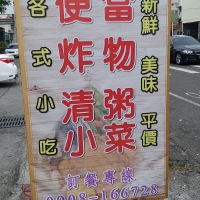 新鮮 美味 平價
便當
炸物
清粥
小菜
各式小吃
訂餐專線
0908-166728